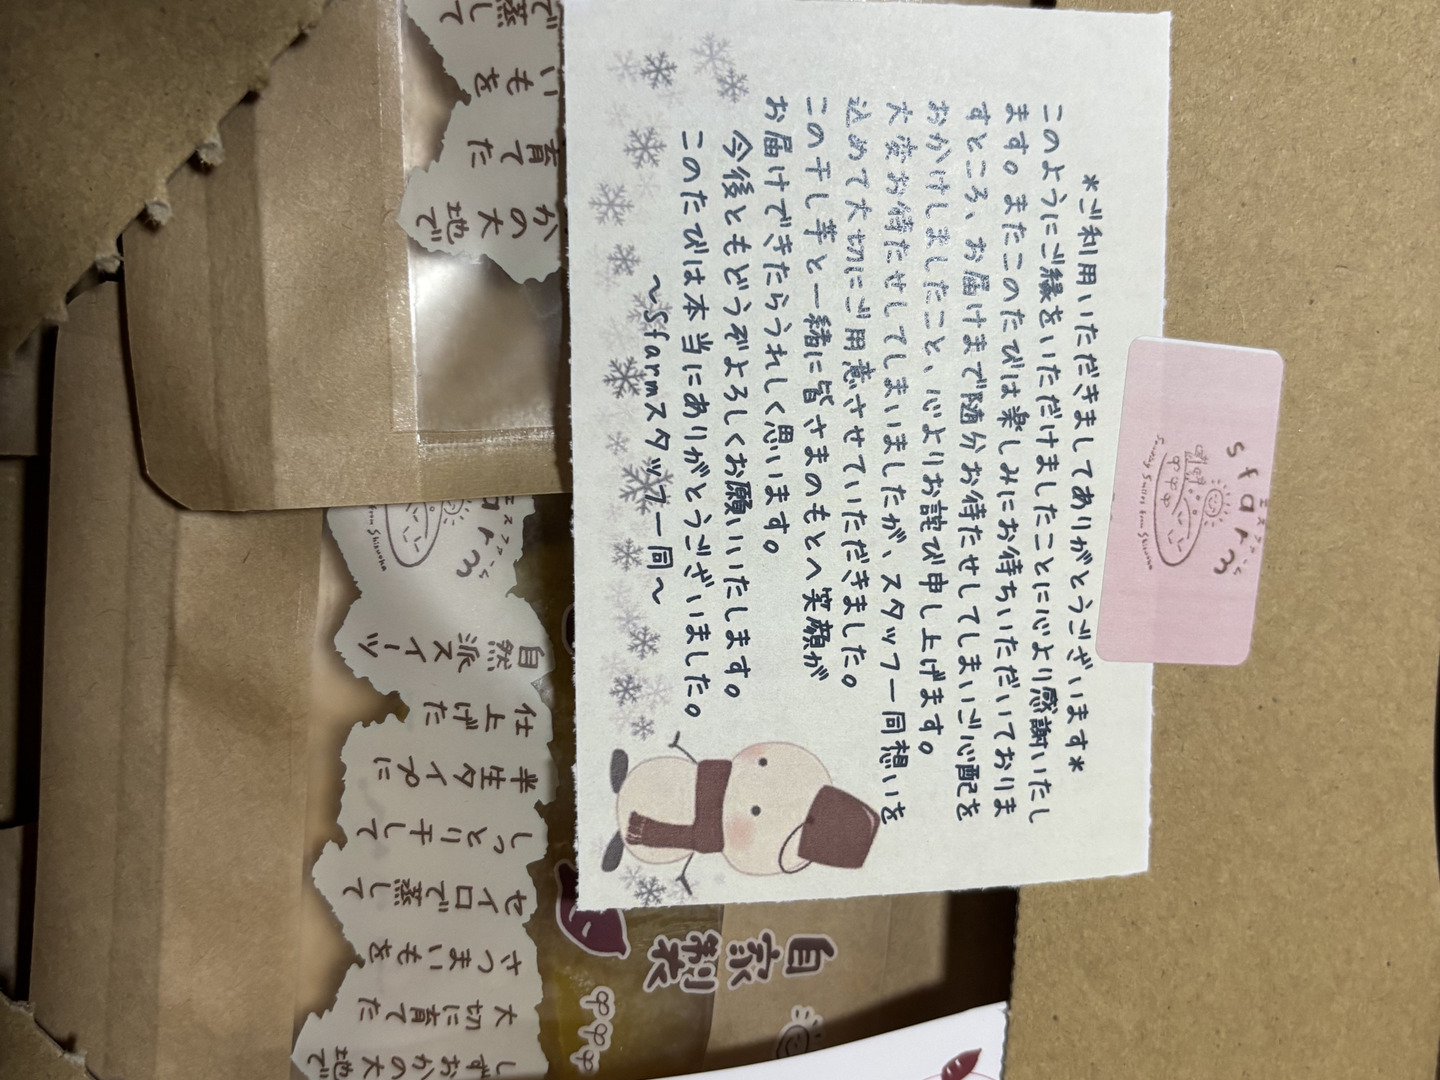 *ご利用いただきましてありがとうございます*
このようにご縁をいただけましたことに心より感謝いたし
ます。またこのたびは楽しみにお待ちいただいておりま
すところ、お届けまで随分お待たせしてしまいご心配を
おかけしましたこと、心よりお詫び申し上げます。
大変お待たせしてしまいましたが、スタッフ一同想いを
込めて大切にご用意させていただきました。
この干し芋と一緒に皆さまのもとへ笑顔が
お届けできたらうれしく思います。
今後ともどうぞよろしくお願いいたします。
このたびは本当にありがとうございました。
～Sfarmスタッフ一同～
エスファーム
sfarm
Sunday Smiles from Shizuoka
かの大
地で
育て
た
いもを
で
蒸し
て
from Shizuoka
自然
派スイーツ
仕
上げた
半生タイプに
しっとり干して
セイロで蒸して
さつまいもを
大切に育てた
しずおかの大地で
自家
製